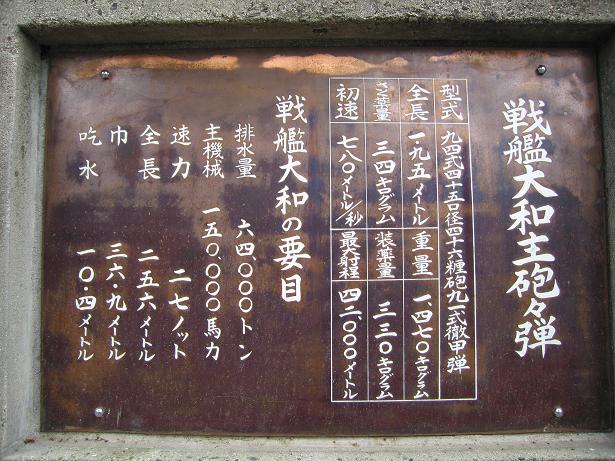 戦艦大和主砲々弾
型式 九四式四十五口径四十六糎砲九一式徹甲弾
全長 一・九五メートル 重量 一、四七〇キログラム
さく薬量 三四キログラム 装薬量 三三〇キログラム
初速 七八〇メートル/秒 最大射程 四二、〇〇〇メートル
戦艦大和の要目
排水量 六四、〇〇〇トン
主機械 一五〇、〇〇〇馬力
速力 二七ノット
全長 二五六メートル
巾 三六・九メートル
吃水 一〇・四メートル